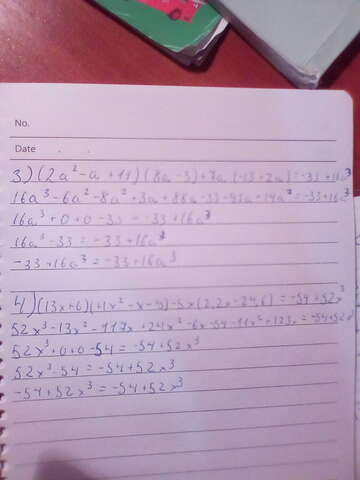 No.
Date
3) (2a² - a + 11) (8a - 3) + 7a (-13 + 2a) = -33 + 16a³
16a³ - 6a² - 8a² + 3a + 88a - 33 - 91a + 14a² = -33 + 16a³
16a³ + 0 + 0 - 33 = -33 + 16a³
16a³ - 33 = -33 + 16a³
-33 + 16a³ = -33 + 16a³
4) (13x + 6) (4x² - x - 9) - 5x (2,2x - 24,6) = -54 + 52x³
52x³ - 13x² - 117x + 24x² - 6x - 54 - 11x² + 123x = -54 + 52x³
52x³ + 0 + 0 - 54 = -54 + 52x³
52x³ - 54 = -54 + 52x³
-54 + 52x³ = -54 + 52x³